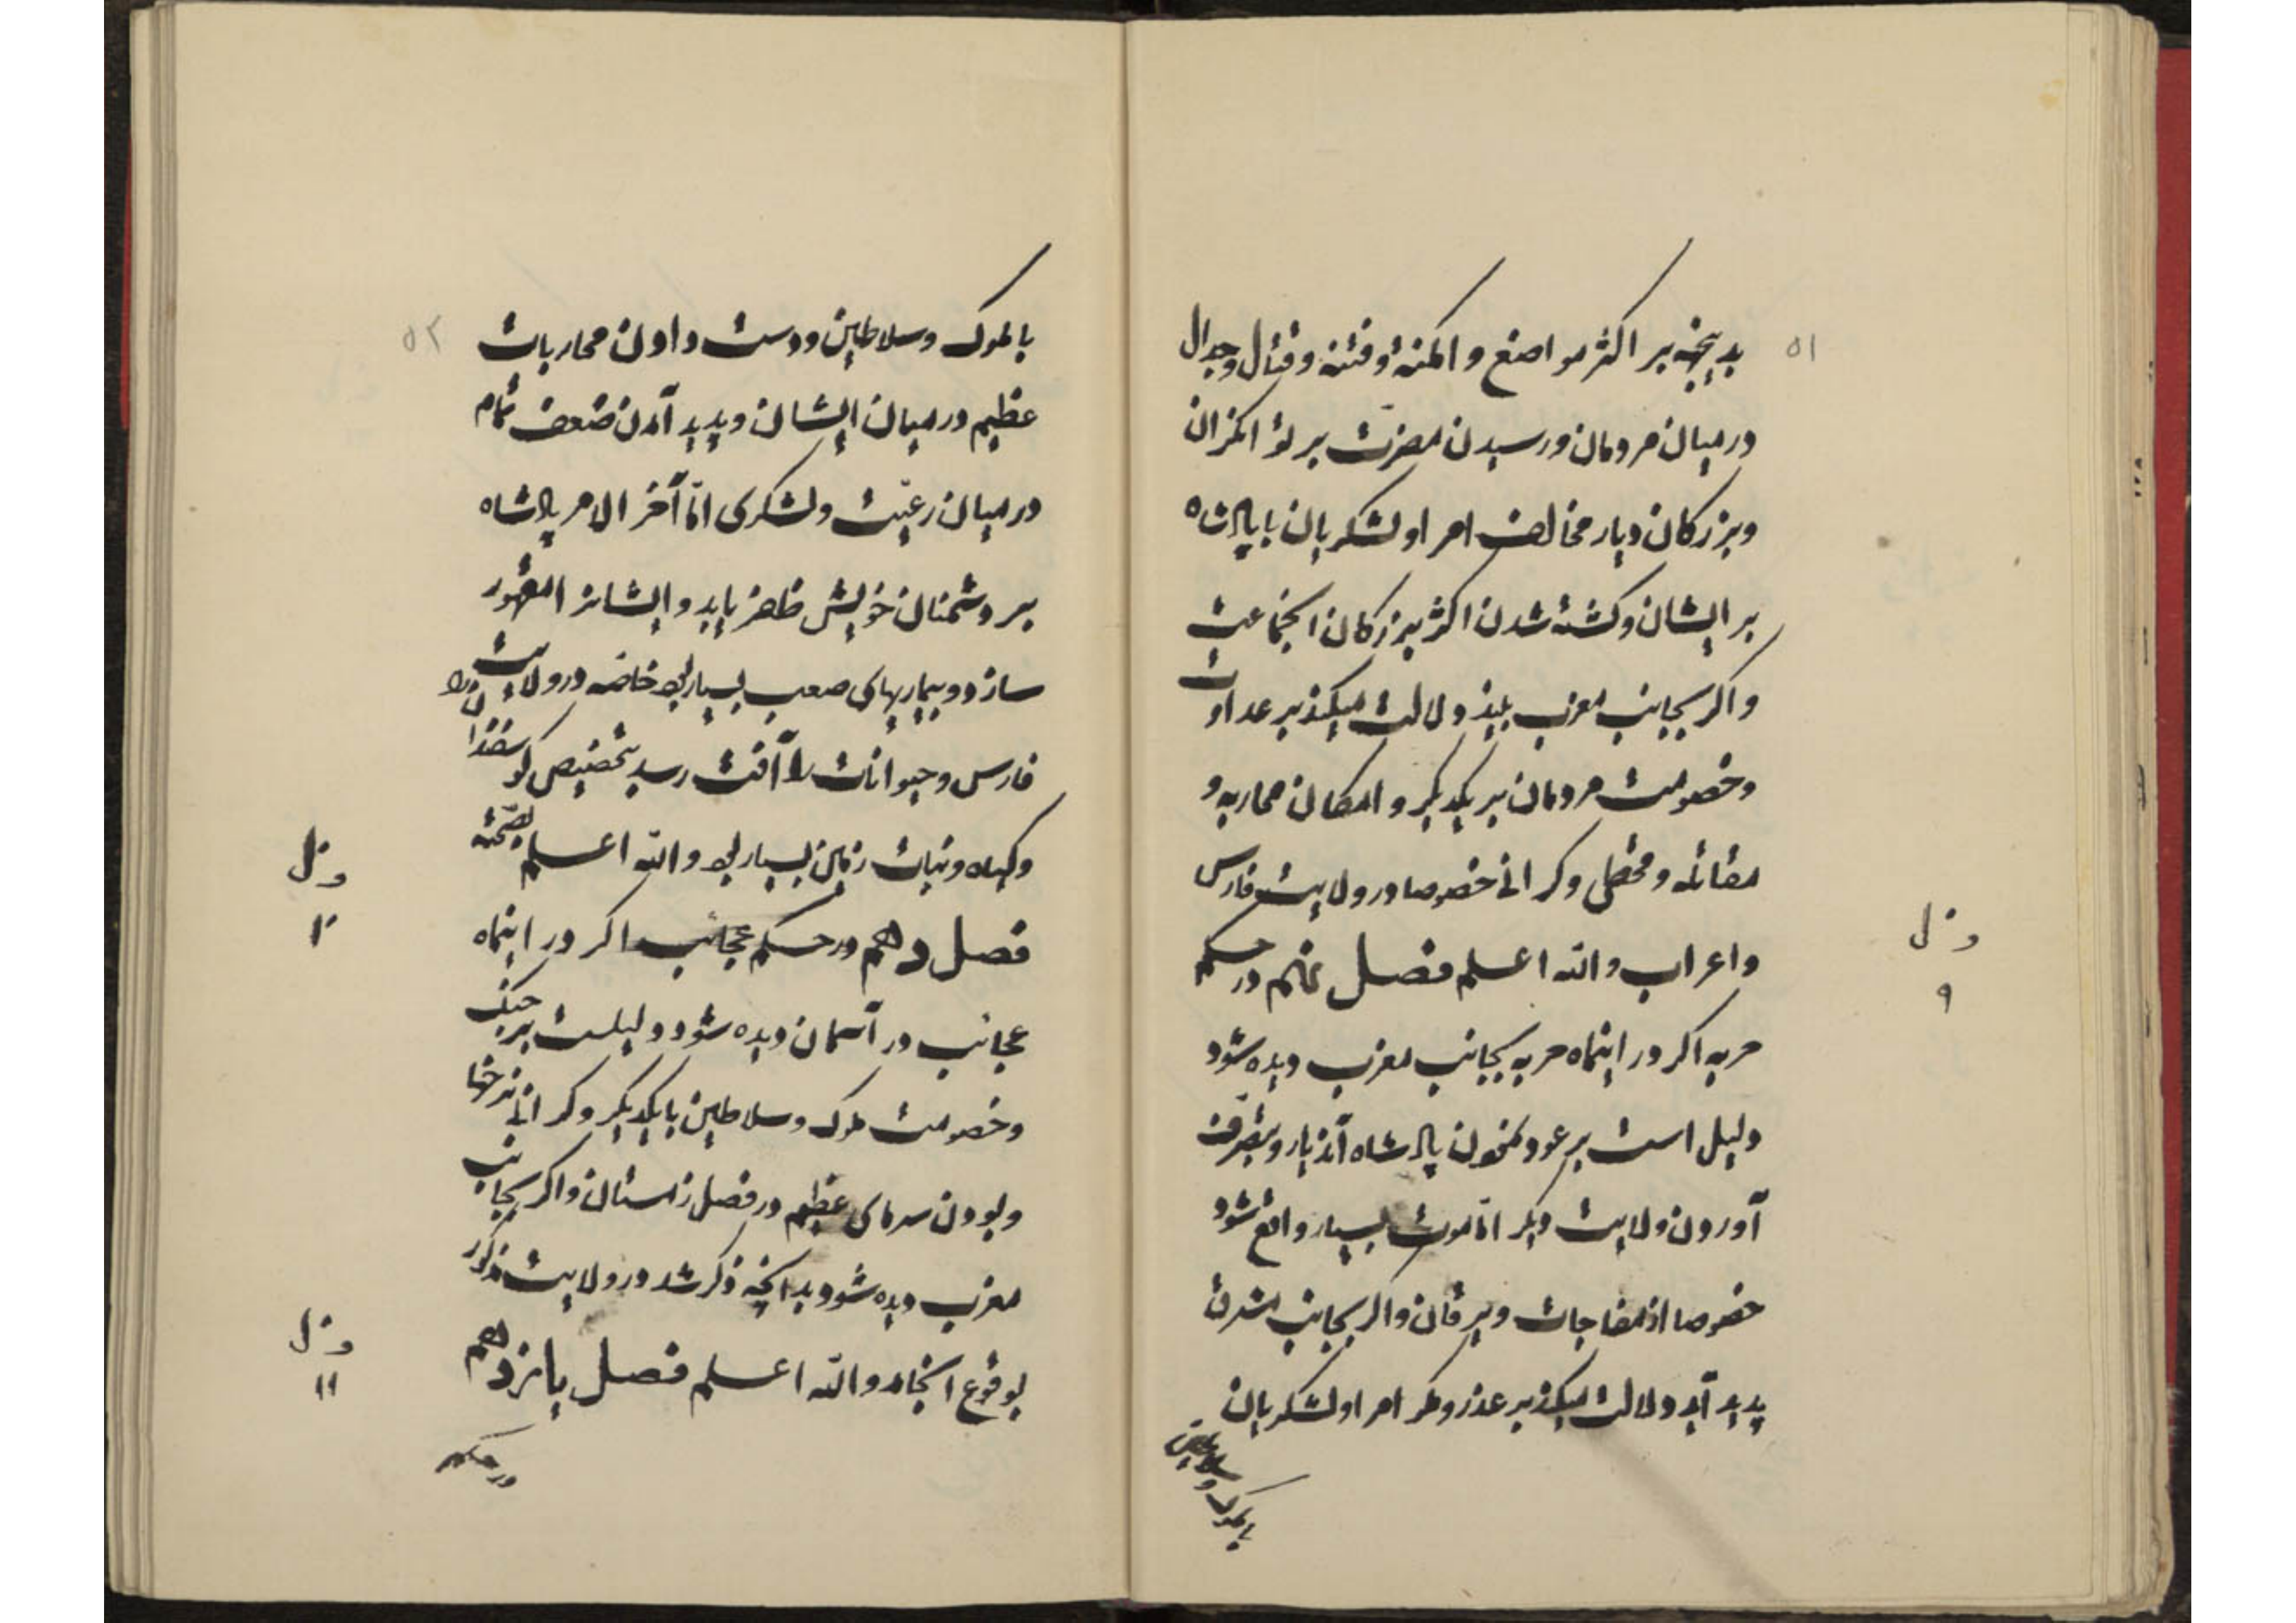 ۵۱
بدیخه بر اکثر مواضع و امکنه و فتنه و قتال و جدال
در میان مردمان و رسیدن مضرت بر توانکران
و بزرکان دیار مخالف امرا و لشکریان با پادشاه
بر ایشان و کشته شدن اکثر بزرکان انجماعت
و اکر بجانب مغرب بیند دلالت میکند بر عداوت
و خصومت مردمان بر یکدیکر و امکان محاربه و
مقاتله و قحطی و کرانی خصوصا در ولایت فارس
و اعراب و الله اعلم فصل نهم در حکم
حربه اکر در اینماه حربه بجانب مغرب دیده شود
دلیل است بر عود نمودن پادشاه آندیار و بتصرف
آوردن ولایت دیکر اما موت بسیار واقع شود
خصوصا از مفاجات و یرقان و اکر بجانب مشرق
پدید آید دلالت میکند بر عذر و مکر امرا و لشکریان
با ملوک و سلاطین
ف ل
۹
۵۲
با ملوک و سلاطین و دست دادن محاربات
عظیم در میان ایشان و پدید آمدن ضعف تمام
در میان رعیت و لشکری اما آخر الامر پادشاه
بر دشمنان خویش ظفر یابد و ایشانرا مقهور
سازد و بیماریهای صعب بسیار بود خاصه در ولایت
فارس و حیوانات را آفت رسد بتخصیص کوسفندانرا
و کیاه و نبات زمین بسیار بود و الله اعلم بصحته
فصل دهم در حکم عجائب اکر در اینماه
عجائب در آسمان دیده شود دلیلست بر جنک
و خصومت ملوک و سلاطین با یکدیکر و کرانی نرخها
و بودن سرمای عظیم در فصل زمستان و اکر بجانب
مغرب دیده شود بدانچه ذکر شد در ولایت مذکور
بوقوع انجامد و الله اعلم فصل یازدهم
در حکم
ف ل
۱۰
ف ل
۱۱